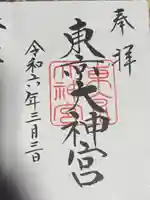 奉拝
東京大神宮
東京大神宮
令和六年三月三日